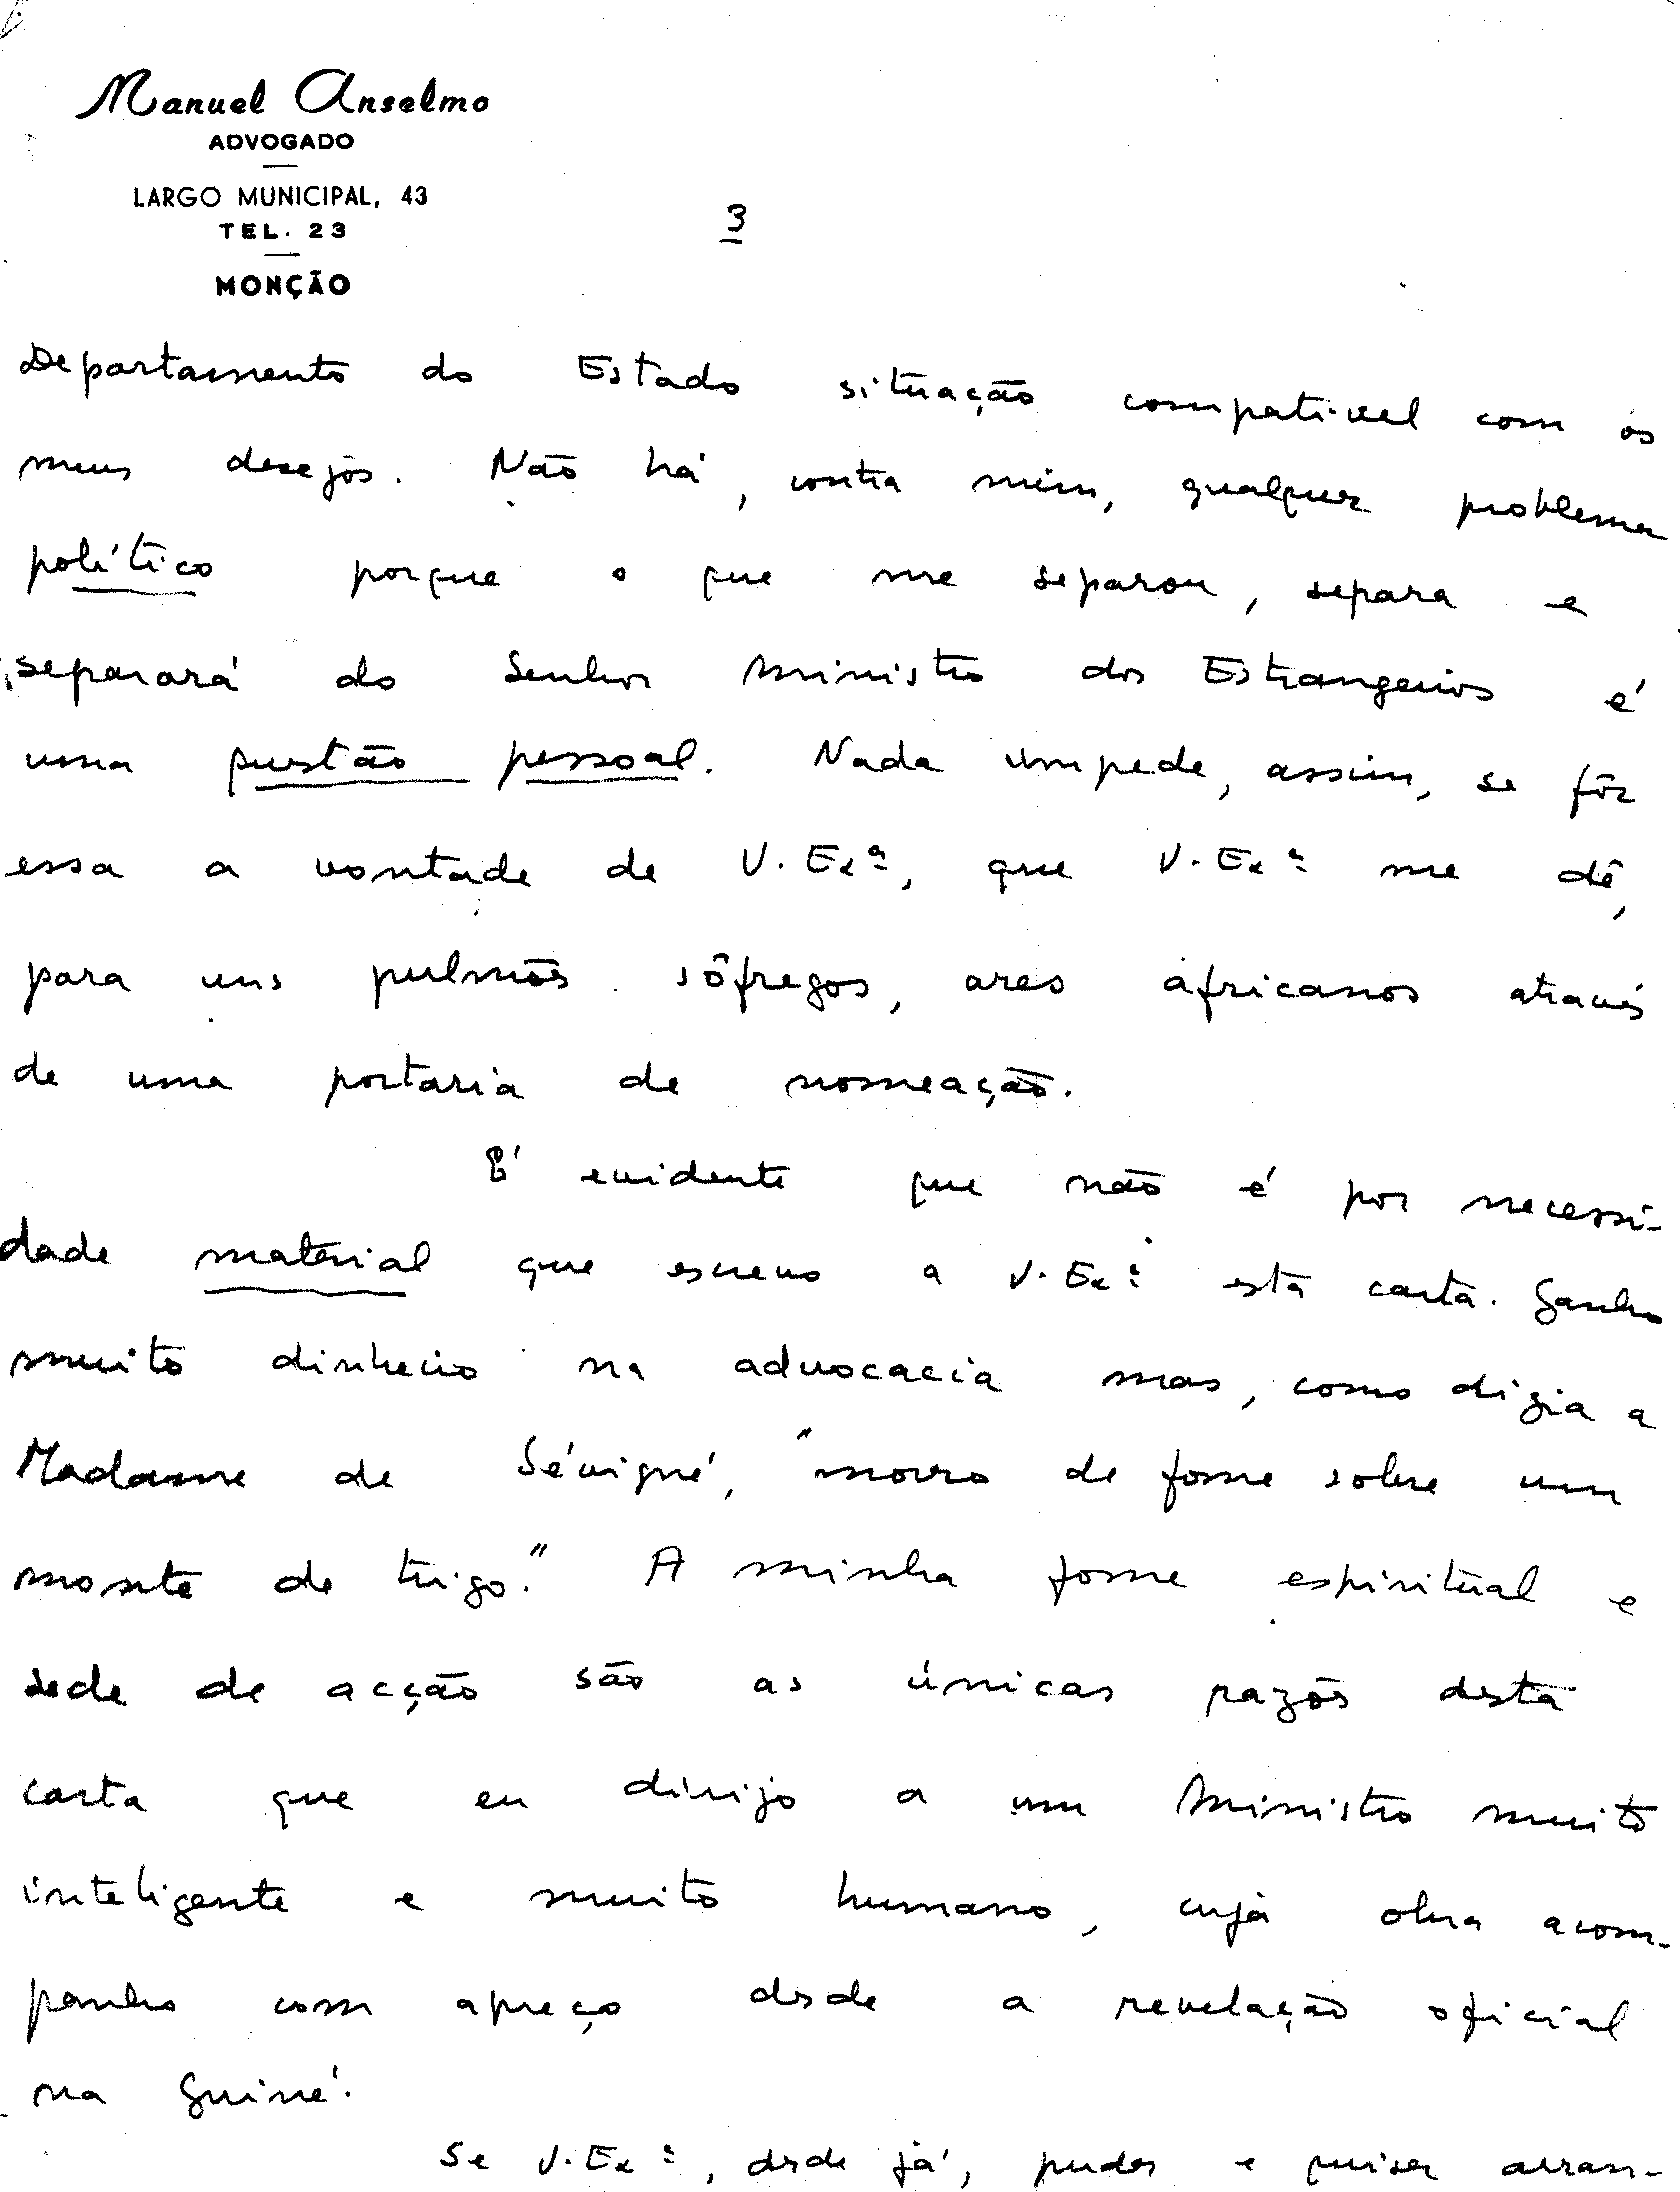 Manuel Anselmo
ADVOGADO
LARGO MUNICIPAL, 43
TEL. 23
MONÇÃO
3
Departamento do Estado situação compativel com os
meus desejos. Não há, contra mim, qualquer problema
político porque o que me separou, separa e
separará do Senhor Ministro dos Estrangeiros é
uma questão pessoal. Nada impede, assim, se fôr
essa a vontade de V. Exª, que V. Exª me dê,
para uns pulmões sôfregos, ares africanos através
de uma portaria de nomeação.
É evidente que não é por necessi-
dade material que escrevo a V. Exª esta carta. Ganho
muito dinheiro na advocacia mas, como dizia a
Madame de Sévigné, "morro de fome sobre um
monte de trigo." A minha fome espiritual e
sede de acção são as únicas razões desta
carta que eu dirijo a um Ministro muito
inteligente e muito humano, cuja obra acom-
panho com apreço desde a revelação oficial
na Guiné.
Se V. Exª, desde já, puder e quiser arran-